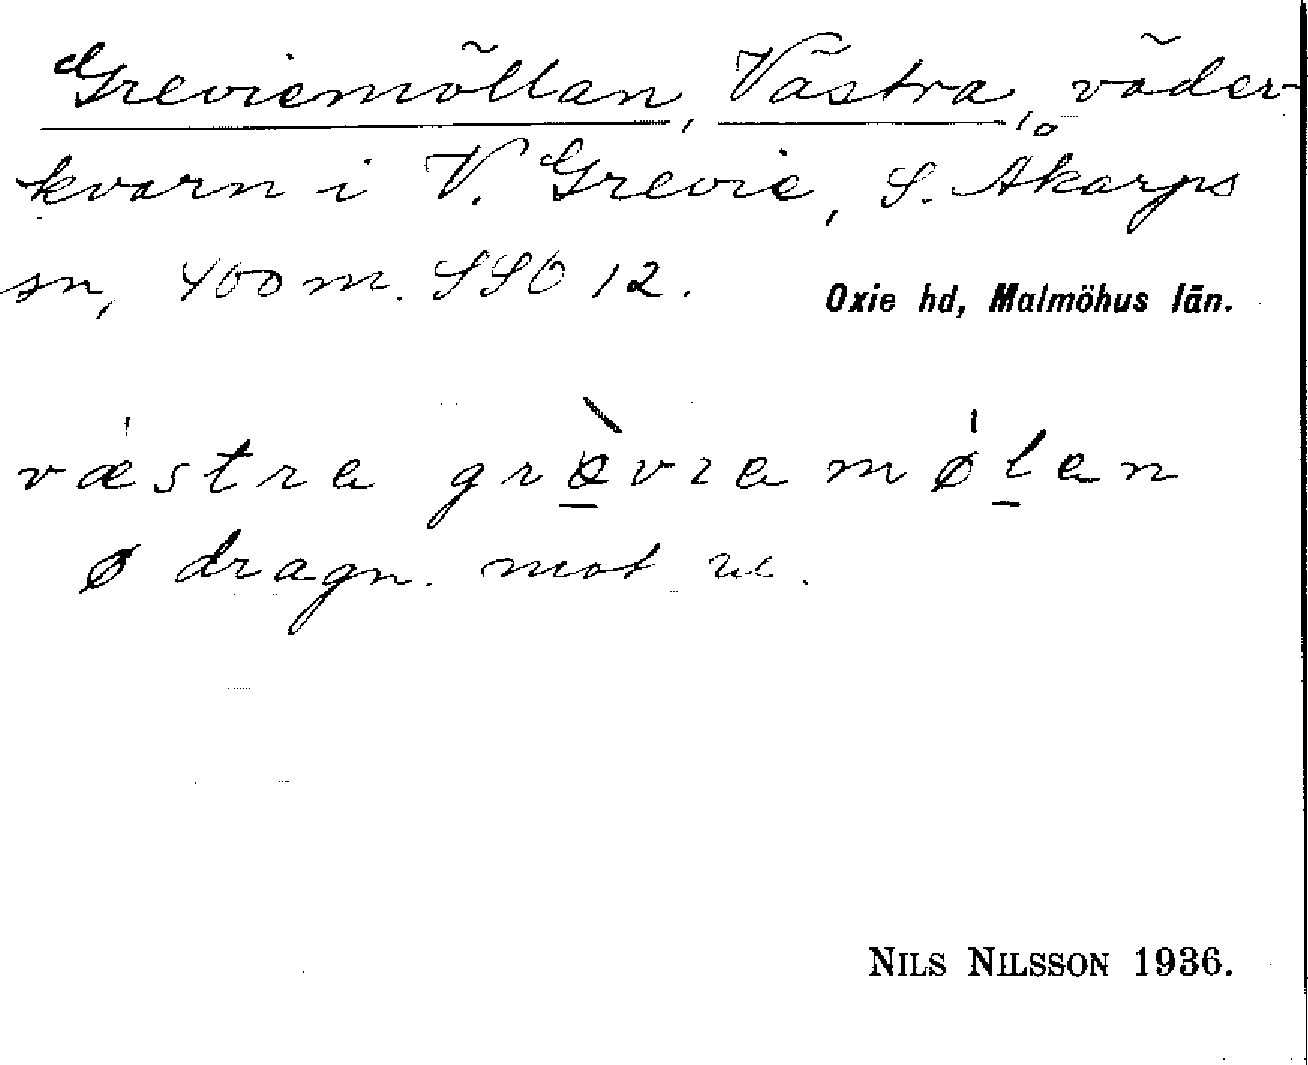 Greviemöllan, Västra, väder-
kvarn i V. Grevie, S. Åkarps
sn, 400 m. SSO 12.
Oxie hd, Malmöhus län.
væstra græviamølan
ø dragn. mot
NILS NILSSON 1936.